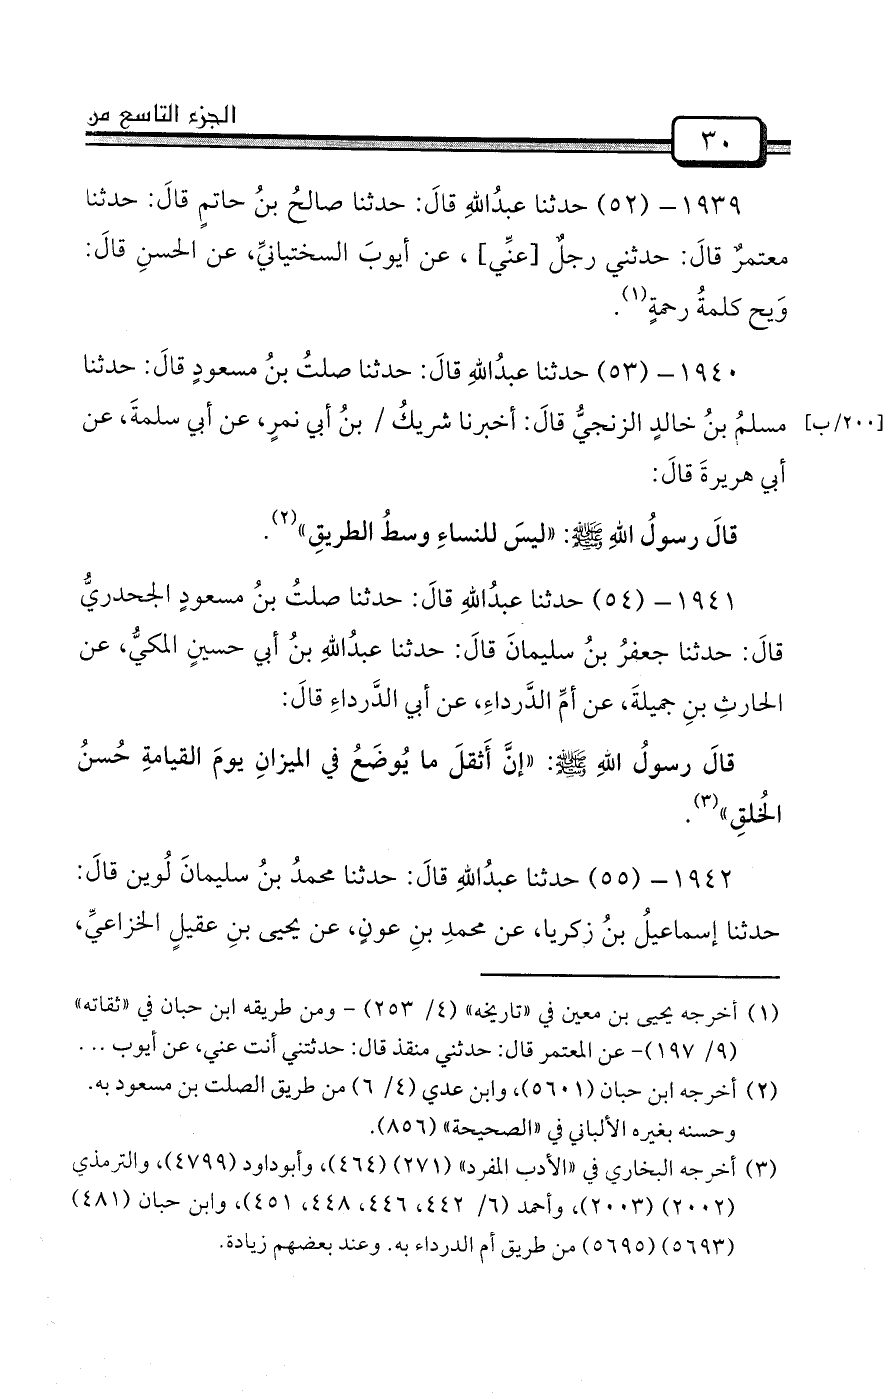 الجزء التاسع من
٣٠
١٩٣٩- (٥٢) حدثنا عبدُاللهِ قالَ: حدثنا صالحُ بنُ حاتمٍ قالَ: حدثنا
معتمرٌ قالَ: حدثني رجلٌ [عنِّي] ، عن أيوبَ السختيانيِّ، عن الحسنِ قالَ:
وَيح كلمةُ رحمةٍ(١).
١٩٤٠- (٥٣) حدثنا عبدُاللهِ قالَ: حدثنا صلتُ بنُ مسعودٍ قالَ: حدثنا
مسلمُ بنُ خالدٍ الزنجيُّ قالَ: أخبرنا شريكُ / بنُ أبي نمرٍ، عن أبي سلمةَ، عن [٢٠٠/ب]
أبي هريرةَ قالَ:
قالَ رسولُ اللهِ ﷺ: «ليسَ للنساءِ وسطُ الطريقِ»(٢).
١٩٤١- (٥٤) حدثنا عبدُاللهِ قالَ: حدثنا صلتُ بنُ مسعودٍ الجحدريُّ
قالَ: حدثنا جعفرُ بنُ سليمانَ قالَ: حدثنا عبدُاللهِ بنُ أبي حسينٍ المكيُّ، عن
الحارثِ بنِ جميلةَ، عن أمِّ الدَّرداءِ، عن أبي الدَّرداءِ قالَ:
قالَ رسولُ اللهِ ﷺ: «إنَّ أَثقلَ ما يُوضَعُ في الميزانِ يومَ القيامةِ حُسنُ
الخُلقِ»(٣).
١٩٤٢- (٥٥) حدثنا عبدُاللهِ قالَ: حدثنا محمدُ بنُ سليمانَ لُوين قالَ:
حدثنا إسماعيلُ بنُ زكريا، عن محمدِ بنِ عونٍ، عن يحيى بنِ عقيلٍ الخزاعيِّ،
(١) أخرجه يحيى بن معين في «تاريخه» (٤/ ٢٥٣) - ومن طريقه ابن حبان في «ثقاته»
(٩/ ١٩٧)- عن المعتمر قال: حدثني منقذ قال: حدثتني أنت عني، عن أيوب ...
(٢) أخرجه ابن حبان (٥٦٠١)، وابن عدي (٤/ ٦) من طريق الصلت بن مسعود به.
وحسنه بغيره الألباني في «الصحيحة» (٨٥٦).
(٣) أخرجه البخاري في «الأدب المفرد» (٢٧١) (٤٦٤)، وأبوداود (٤٧٩٩)، والترمذي
(٢٠٠٢) (٢٠٠٣)، وأحمد (٦/ ٤٤٢، ٤٤٦، ٤٤٨، ٤٥١)، وابن حبان (٤٨١)
(٥٦٩٣) (٥٦٩٥) من طريق أم الدرداء به. وعند بعضهم زيادة.